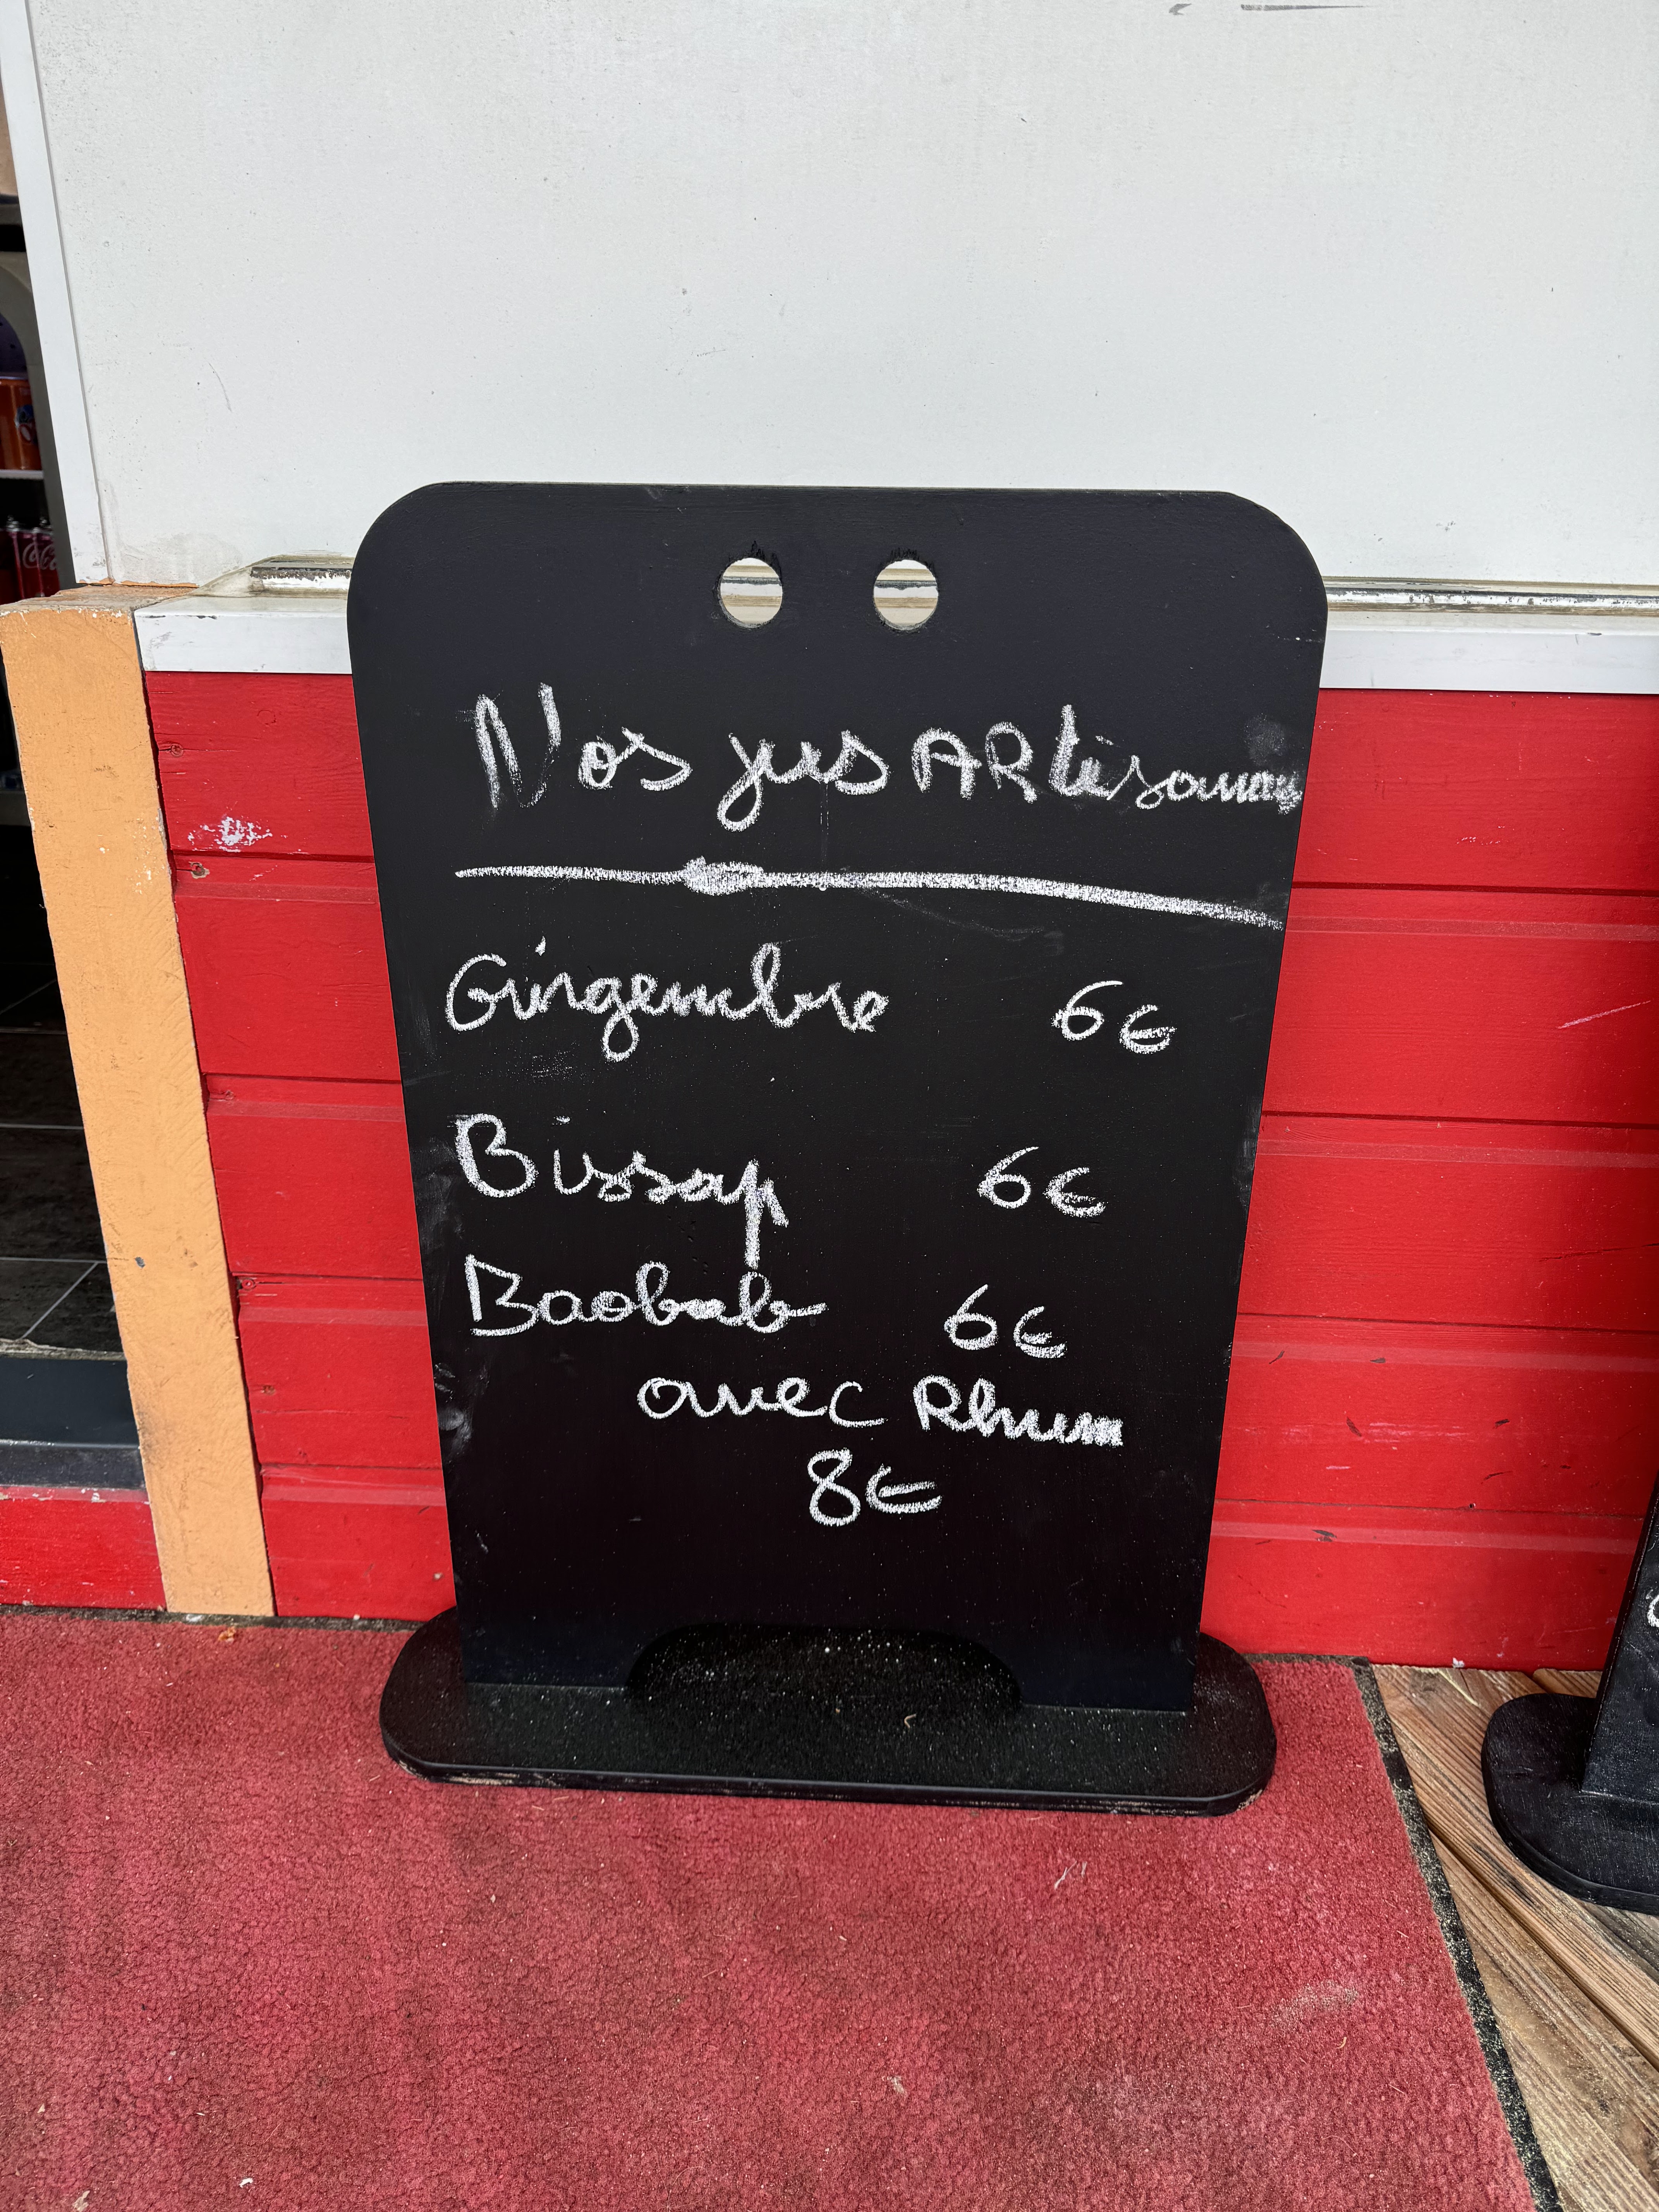 Nos jus ARtisanaux
Gingembre 6€
Bissap 6€
Baobab 6€
avec Rhum
8€